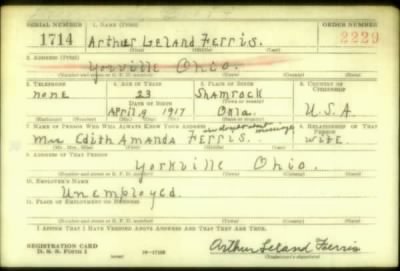 SERIAL NUMBER 1. NAME (Print) ORDER NUMBER
1714 Arthur Leland Ferris. 2229
(First) (Middle) (Last)
2. ADDRESS (Print)
Yorville Ohio.
(Number and street or R. F. D. number) (Town) (County) (State)
3. TELEPHONE 4. AGE IN YEARS 5. PLACE OF BIRTH 6. COUNTRY OF CITIZENSHIP
none 23 Shamrock
DATE OF BIRTH (Town or county)
April 9 1917 Okla. U.S.A.
(Exchange) (Number) (Mo.) (Day) (Yr.) (State or country)
7. NAME OF PERSON WHO WILL ALWAYS KNOW YOUR ADDRESS 8. RELATIONSHIP OF THAT PERSON
Mrs Edith Amanda Ferris. wife
(Mr., Mrs., Miss) (First) (Middle) (Last)
9. ADDRESS OF THAT PERSON
Yorkville Ohio.
(Number and street or R. F. D. number) (Town) (County) (State)
10. EMPLOYER'S NAME
Unemployed.
11. PLACE OF EMPLOYMENT OR BUSINESS
(Number and street or R. F. D. number) (Town) (County) (State)
I AFFIRM THAT I HAVE VERIFIED ABOVE ANSWERS AND THAT THEY ARE TRUE.
REGISTRATION CARD
D. S. S. FORM 1 Arthur Leland Ferris
(Registrant's signature)